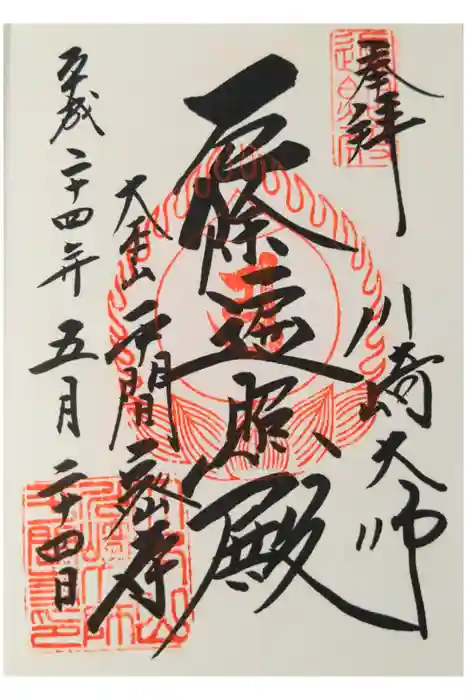 奉拝
川崎大師
厄除遍照殿
大本山 平間密寺
平成二十四年 五月 二十四日